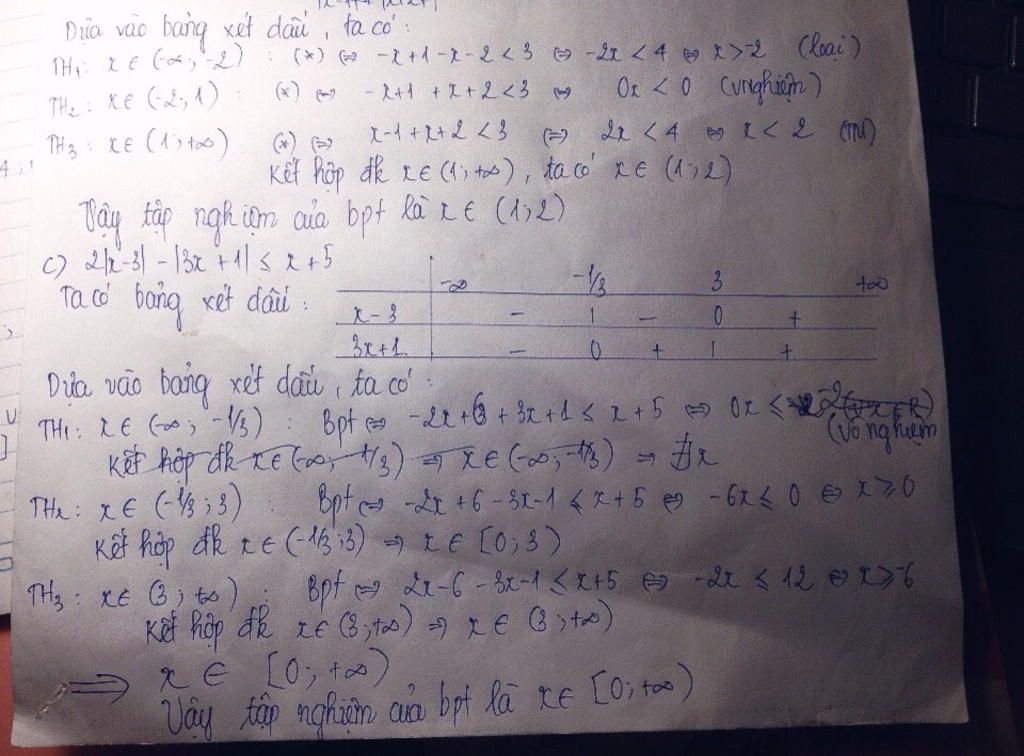 Dựa vào bảng xét dấu, ta có:
TH1: x ∈ (-∞; -2) : (*) ⇔ -x+1-x-2 < 3 ⇔ -2x < 4 ⇔ x > -2 (loại)
TH2: x ∈ (-2; 1) : (*) ⇔ -x+1 + x+2 < 3 ⇔ 0x < 0 (vnghiệm)
TH3: x ∈ (1; +∞) (*) ⇔ x-1+x+2 < 3 ⇔ 2x < 4 ⇔ x < 2 (TM)
Kết hợp đk x ∈ (1; +∞), ta có x ∈ (1; 2)
Vậy tập nghiệm của bpt là x ∈ (1; 2)
c) 2|x-3| - |3x+1| ≤ x+5
Ta có bảng xét dấu:
-∞ -1/3 3 +∞
x-3 - | - 0 +
3x+1 - 0 + | +
Dựa vào bảng xét dấu, ta có:
TH1: x ∈ (-∞; -1/3) : Bpt ⇔ -2x+6 + 3x+1 ≤ x+5 ⇔ 0x ≤ -2
(vô nghiệm
Kết hợp đk x ∈ (-∞; -1/3) ⇒ x ∈ (-∞; -1/3) ⇒ ∄x
TH2: x ∈ (-1/3; 3) : Bpt ⇔ -2x+6-3x-1 ≤ x+5 ⇔ -6x ≤ 0 ⇔ x ≥ 0
Kết hợp đk x ∈ (-1/3; 3) ⇒ x ∈ [0; 3)
TH3: x ∈ (3; +∞) : Bpt ⇔ 2x-6-3x-1 ≤ x+5 ⇔ -2x ≤ 12 ⇔ x ≥ -6
Kết hợp đk x ∈ (3; +∞) ⇒ x ∈ (3; +∞)
⇒ x ∈ [0; +∞)
Vậy tập nghiệm của bpt là x ∈ [0; +∞)